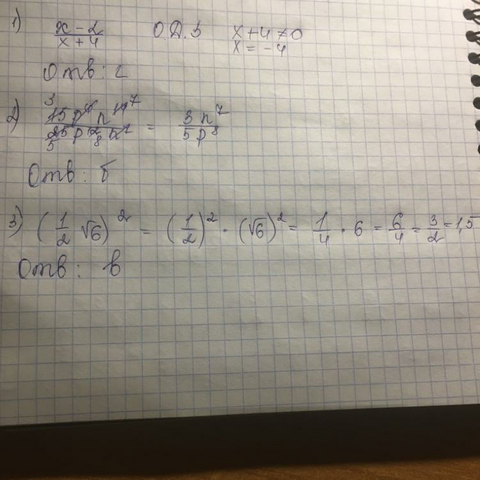 1) x-2/x+4 О.Д.З x+4≠0
x=-4
Отв: г
2) 15p⁴n¹⁴/25p¹²n⁷ = 3n⁷/5p⁸
Отв: б
3) (1/2 √6)² = (1/2)² · (√6)² = 1/4 · 6 = 6/4 = 3/2 = 1,5
Отв: в